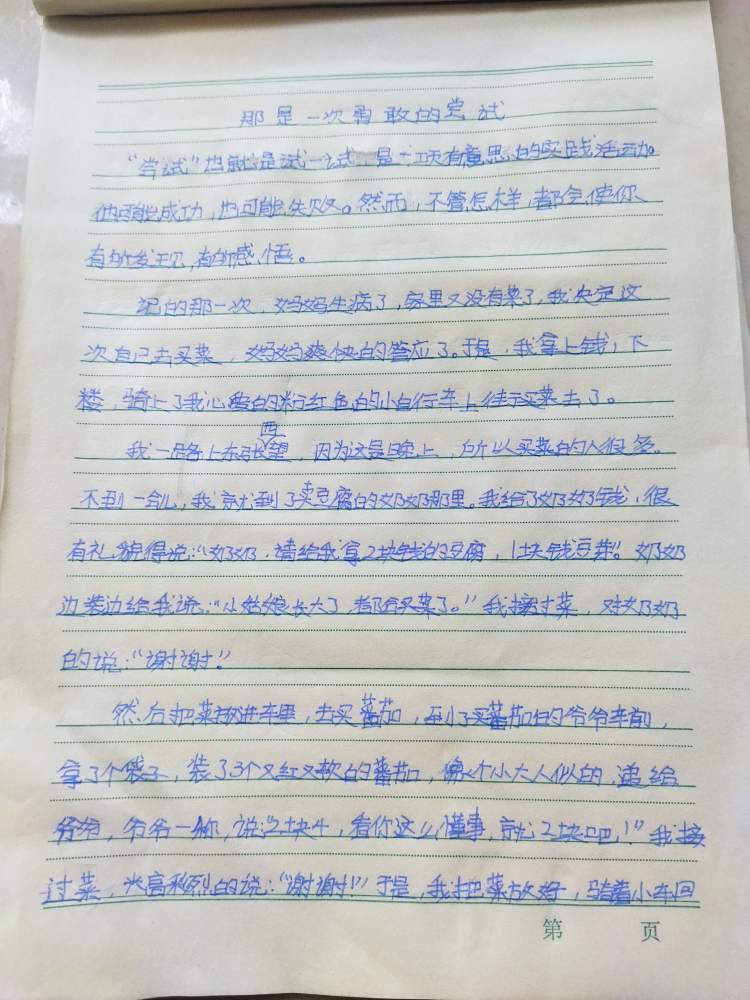 那是一次勇敢的尝试
“尝试”也就是试一试,是一项有意思的实践活动。
他可能成功,也可能失败。然而,不管怎样,都会使你
有所发现,有所感悟。
记的那一次,妈妈生病了,家里又没有菜了,我决定这
次自己去买菜,妈妈爽快的答应了。于是,我拿上钱,下
楼,骑上了我心爱的粉红色的小自行车上往买菜去了。
我一路上东张西望,因为这是晚上,所以买菜的人很多。
不到一会儿,我就到了卖豆腐的奶奶那里。我给了奶奶钱,很
有礼貌得说:“奶奶,请给我拿2块钱的豆腐,1块钱豆芽!奶奶
边装边给我说:“小姑娘长大了,都会买菜了。”我接过菜,对奶奶
的说:“谢谢!”
然后把菜放进车里,去买蕃茄,到了买蕃茄的爷爷车前,
拿了个袋子,装了3个又红又软的蕃茄,像个小大人似的,递给
爷爷,爷爷一称,说:“2块4,看你这么懂事,就2块吧!”我接
过菜,兴高彩烈的说:“谢谢!”于是,我把菜放好,骑着小车回
第 页